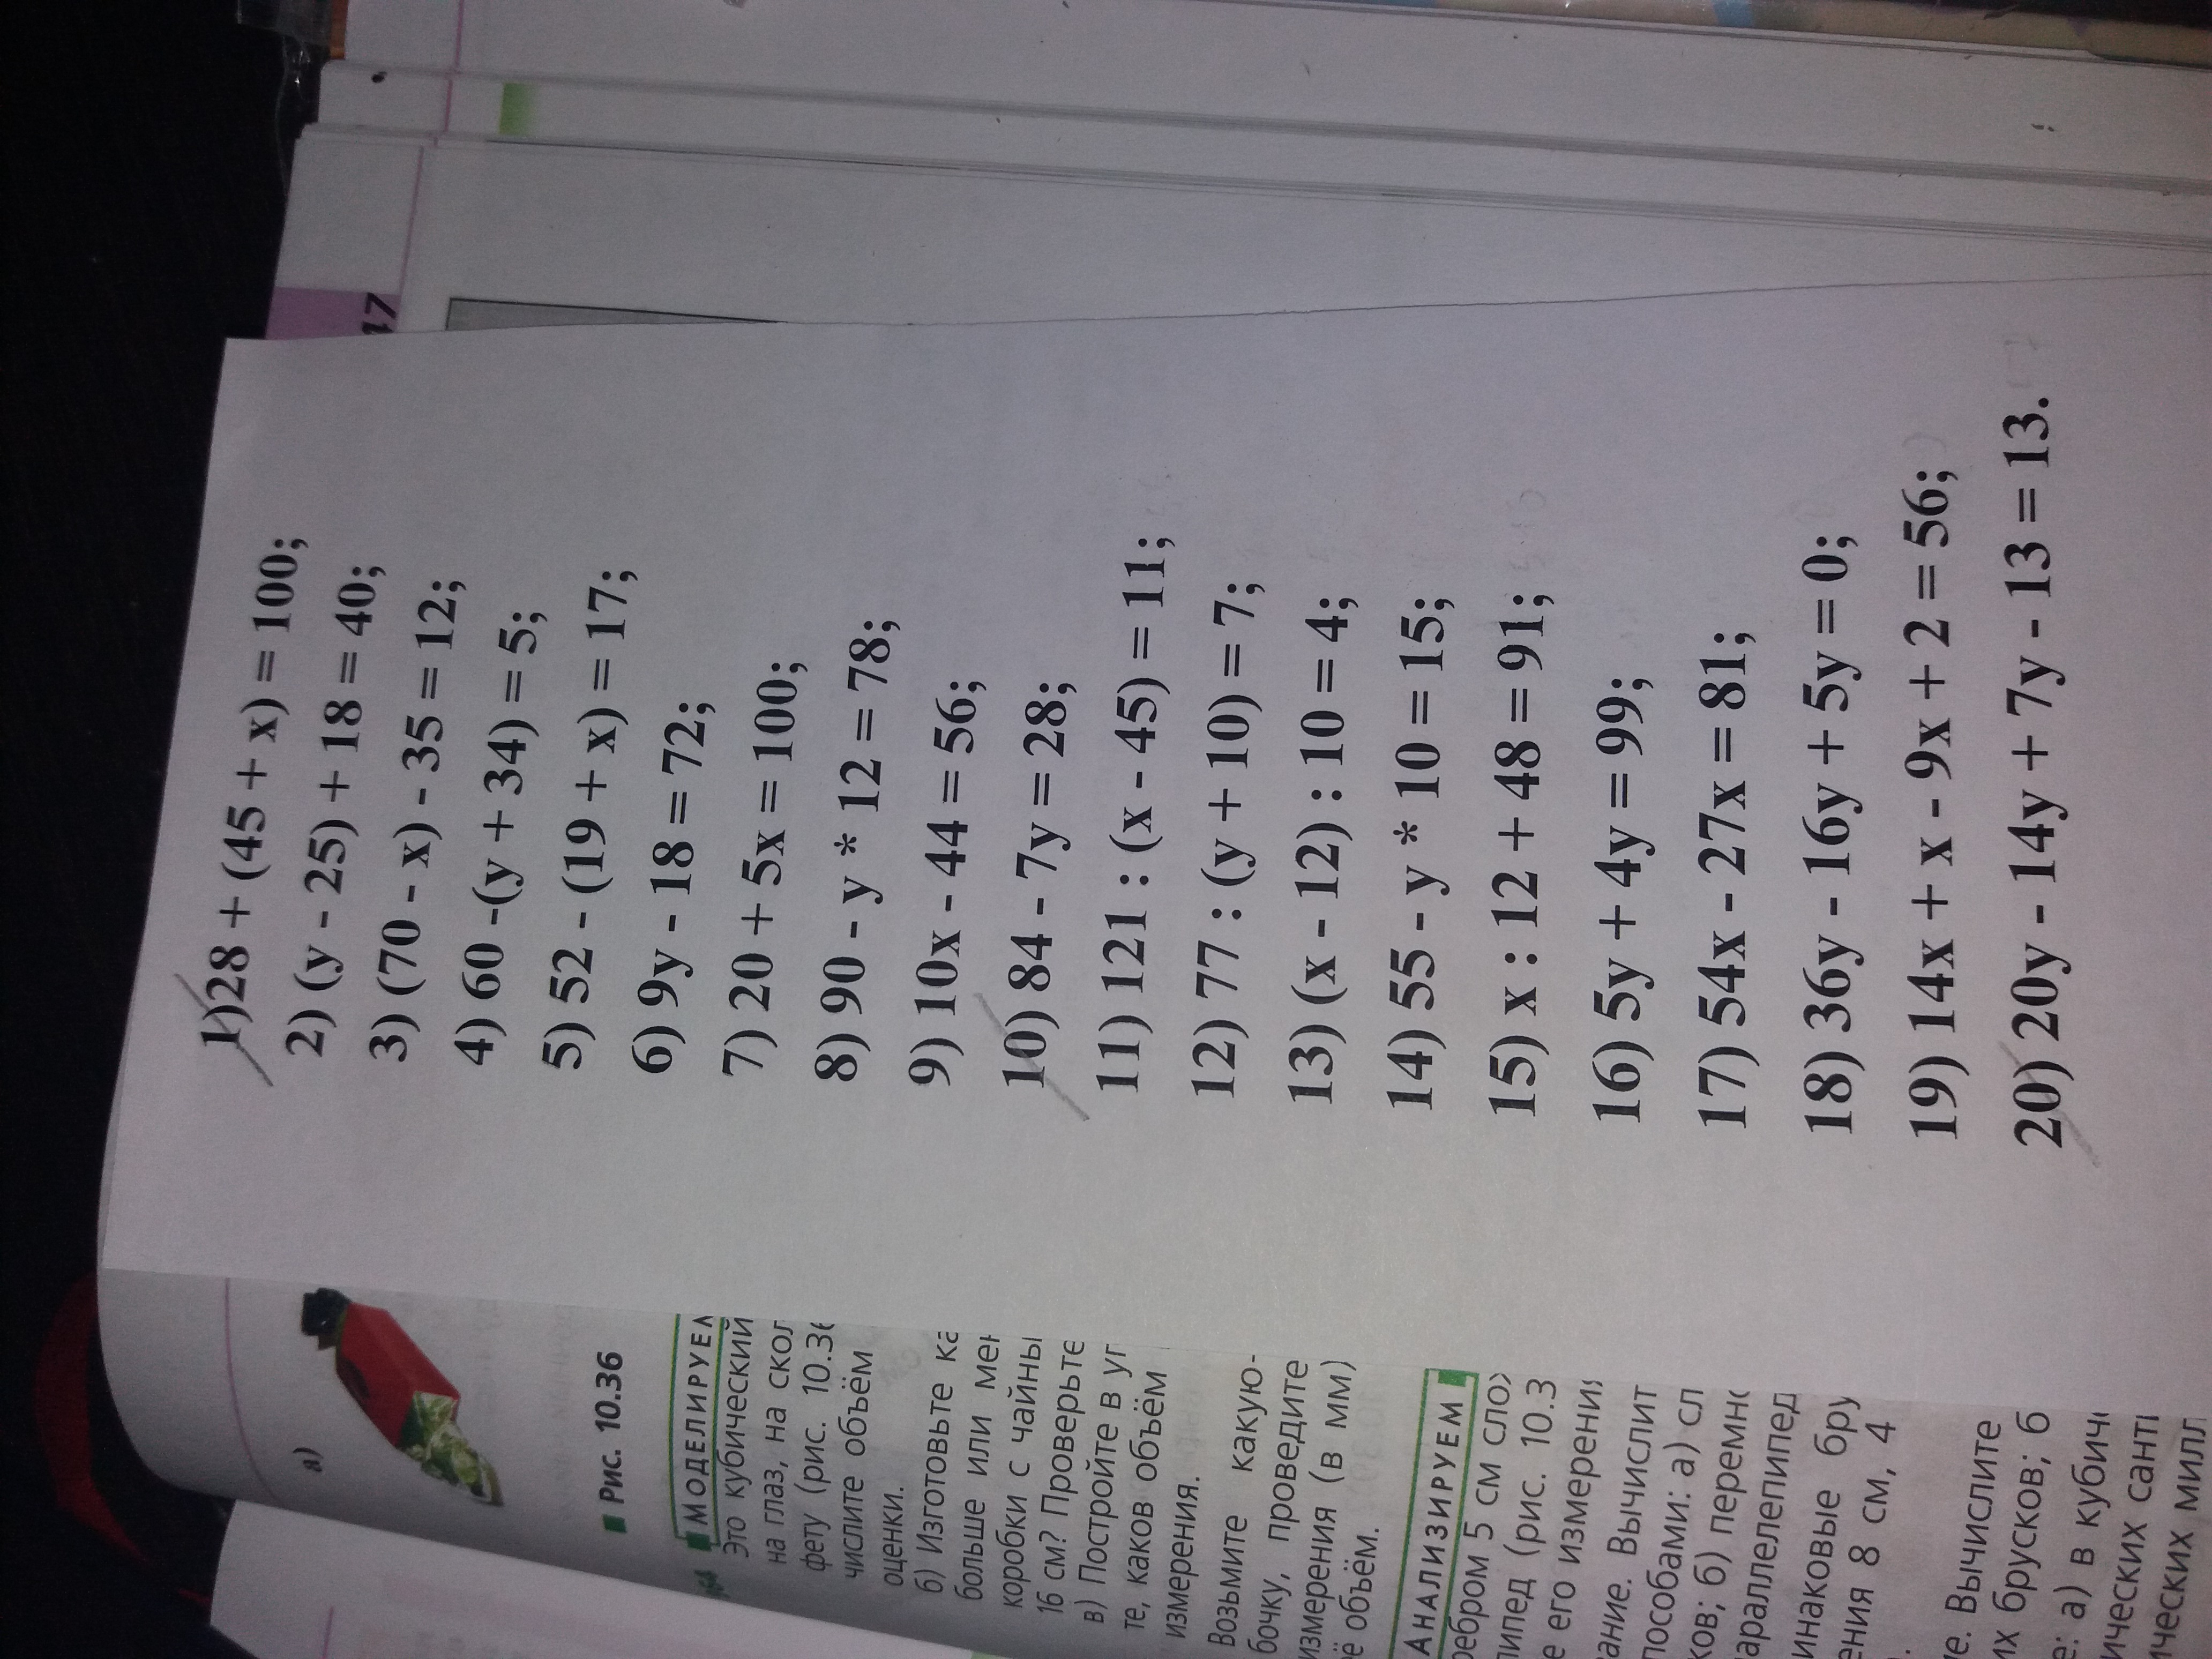 1)28 + (45 + x) = 100;
2) (y - 25) + 18 = 40;
3) (70 - x) - 35 = 12;
4) 60 -(y + 34) = 5;
5) 52 - (19 + x) = 17;
6) 9y - 18 = 72;
7) 20 + 5x = 100;
8) 90 - y * 12 = 78;
9) 10x - 44 = 56;
10) 84 - 7y = 28;
11) 121 : (x - 45) = 11;
12) 77 : (y + 10) = 7;
13) (x - 12) : 10 = 4;
14) 55 - y * 10 = 15;
15) x : 12 + 48 = 91;
16) 5y + 4y = 99;
17) 54x - 27x = 81;
18) 36y - 16y + 5y = 0;
19) 14x + x - 9x + 2 = 56;
20) 20y - 14y + 7y - 13 = 13.
а)
Рис. 10.36
МОДЕЛИРУЕМ
Это кубический
на глаз, на
фету (рис. 10.36
числите объём
оценки.
б) Изготовьте
больше или
коробки с
16 см? Проверьте
в) Постройте в
те, каков объём
измерения.
Возьмите какую-
бочку, проведите
измерения (в мм)
её объём.
АНАЛИЗИРУЕМ
ребром 5 см
(рис. 10.3
е его измерения
Вычислит
а)
ков; б)
бру
ения 8 см, 4
е. Вычислите
их брусков; б
е: а) в
ических
ических